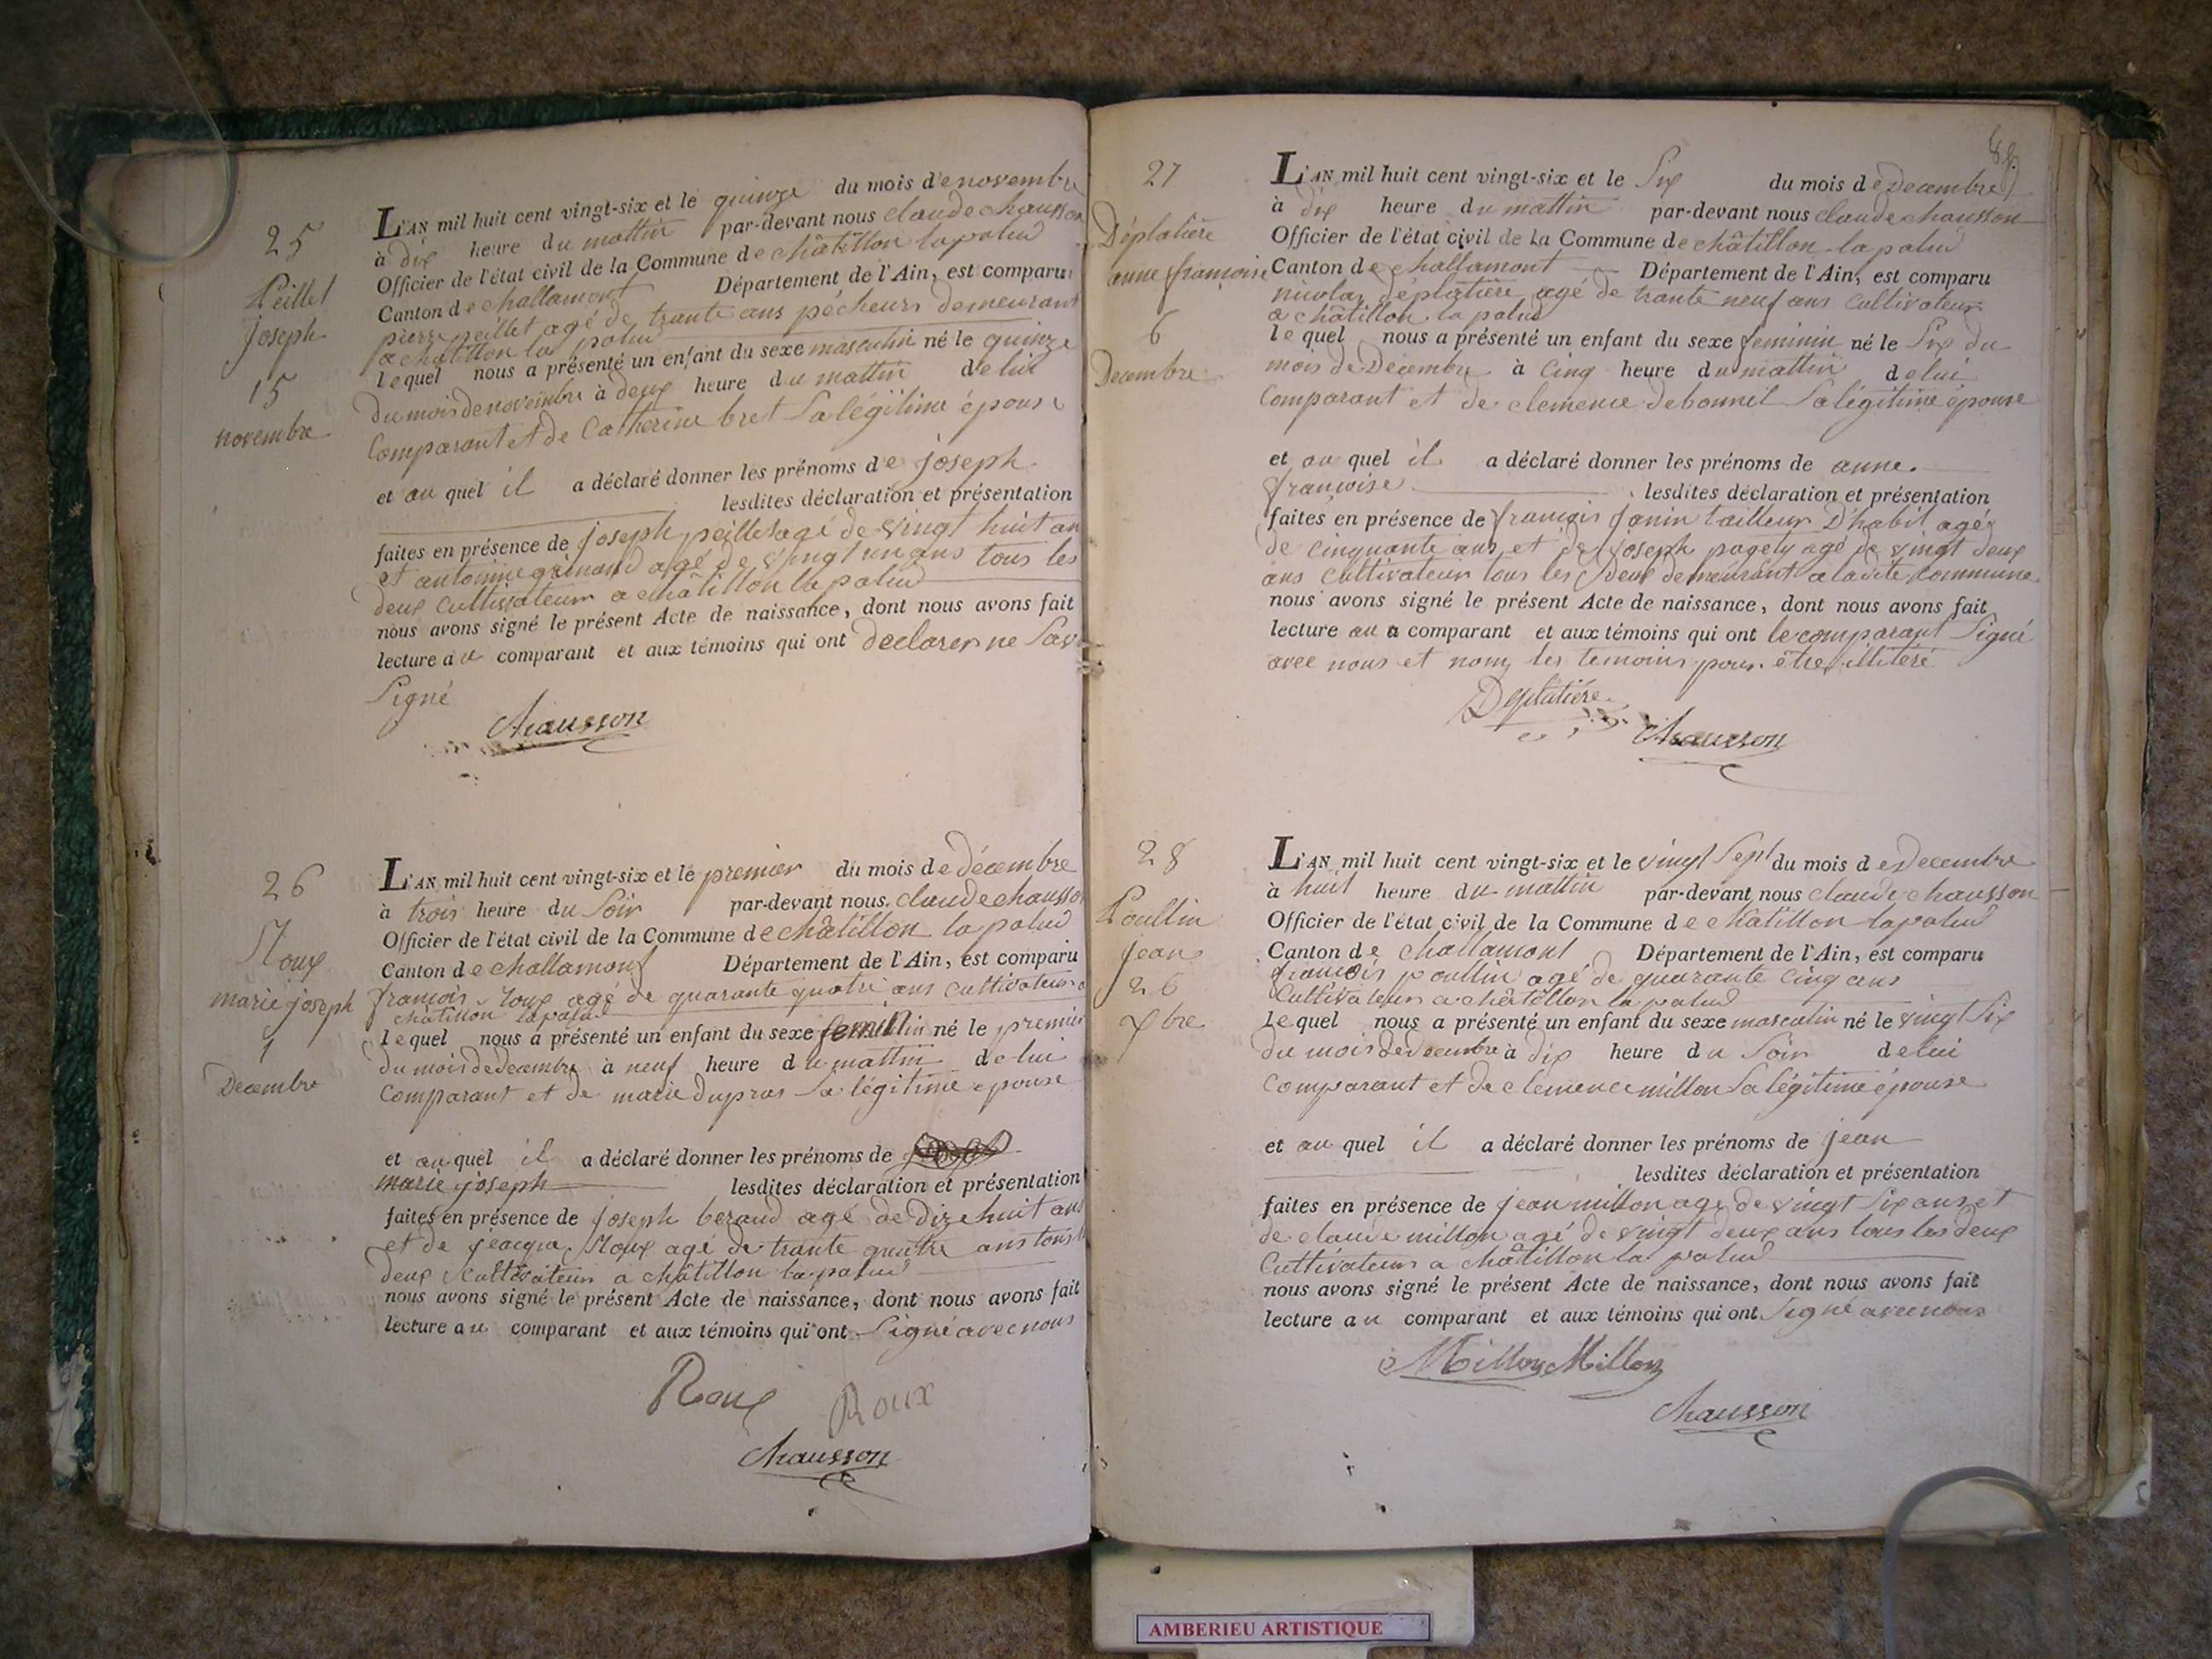 25
Peillet
Joseph
15
novembre
L'AN mil huit cent vingt-six et le quinze du mois de novembre
à dix heure du mattin par-devant nous claude chausson
Officier de l'état civil de la Commune de châtillon la palud
Canton de challamont Département de l'Ain, est comparu
pierre peillet agé de trante ans pécheurs demeurant
a chatillon la palud
lequel nous a présenté un enfant du sexe masculin né le quinze
du mois de novembre à deux heure du mattin de lui
Comparant et de Catherine bret Sa légitime épouse
et au quel il a déclaré donner les prénoms de joseph
lesdites déclaration et présentation
faites en présence de joseph peillet agé de vingt huit an
et antoinne grinand agé de vingt un ans tous les
deux Cultivateur a châtillon la palud
nous avons signé le présent Acte de naissance, dont nous avons fait
lecture au comparant et aux témoins qui ont declarer ne Sav
Signé
Chausson
26
Roux
marie joseph
1
Decembre
L'AN mil huit cent vingt-six et le premier du mois de décembre
à trois heure du Soir par-devant nous claude chausson
Officier de l'état civil de la Commune de châtillon la palud
Canton de challamont Département de l'Ain, est comparu
françois Roux agé de quarante quatre ans cultivateur a
châtillon lapalud
lequel nous a présenté un enfant du sexe feminin né le premier
du mois de Decembre à neuf heure du mattin de lui
Comparant et de marie dupras Sa légitime épouse
et au quel il a déclaré donner les prénoms de
marie joseph lesdites déclaration et présentation
faites en présence de joseph beraud agé de dize huit ans
et de jeacque Roux agé de trante quatre ans tous l
deux Cultivateur a châtillon la palud
nous avons signé le présent Acte de naissance, dont nous avons fait
lecture au comparant et aux témoins qui ont Signé avec nous
Roux Roux
Chausson
27
Déplatière
anne françoise
6
Decembre
L'AN mil huit cent vingt-six et le Six du mois de Decembre
à dix heure du mattin par-devant nous claude chausson
Officier de l'état civil de la Commune de châtillon la palud
Canton de challamont Département de l'Ain, est comparu
nicolas déplatière agé de trante neuf ans Cultivateur
a châtillon la palud
lequel nous a présenté un enfant du sexe feminin né le Six du
mois de Décembre à Cinq heure du mattin de lui
Comparant et de clemence debonnil Sa légitime épouse
et au quel il a déclaré donner les prénoms de anne
françoise lesdites déclaration et présentation
faites en présence de françois janin tailleur D'habit agés
de cinquante ans et de joseph pagety agé de vingt deux
ans cultivateur tous les deux demeurant a la dite commune
nous avons signé le présent Acte de naissance, dont nous avons fait
lecture au comparant et aux témoins qui ont le comparant Signé
avec nous et nomy les temoins pour être illiteré
Deplatiére
Chausson
28
Poullin
jean
26
xbre
L'AN mil huit cent vingt-six et le vingt Sept du mois de Decembre
à huit heure du mattin par-devant nous claude chausson
Officier de l'état civil de la Commune de châtillon lapalud
Canton de challamont Département de l'Ain, est comparu
françois poullin agé de quarante cinq ans
Cultivateur a châtillon la palud
lequel nous a présenté un enfant du sexe masculin né le vingt Six
du mois de Decembre à dix heure du Soir de lui
Comparant et de clemence millon Sa légitime épouse
et au quel il a déclaré donner les prénoms de jean
lesdites déclaration et présentation
faites en présence de jean millon agé de vingt Six ans et
de claude millon agé de vingt deux ans tous les deux
Cultivateur a châtillon la palud
nous avons signé le présent Acte de naissance, dont nous avons fait
lecture au comparant et aux témoins qui ont Signé avec nous
Millon Millon
Chausson
AMBERIEU ARTISTIQUE